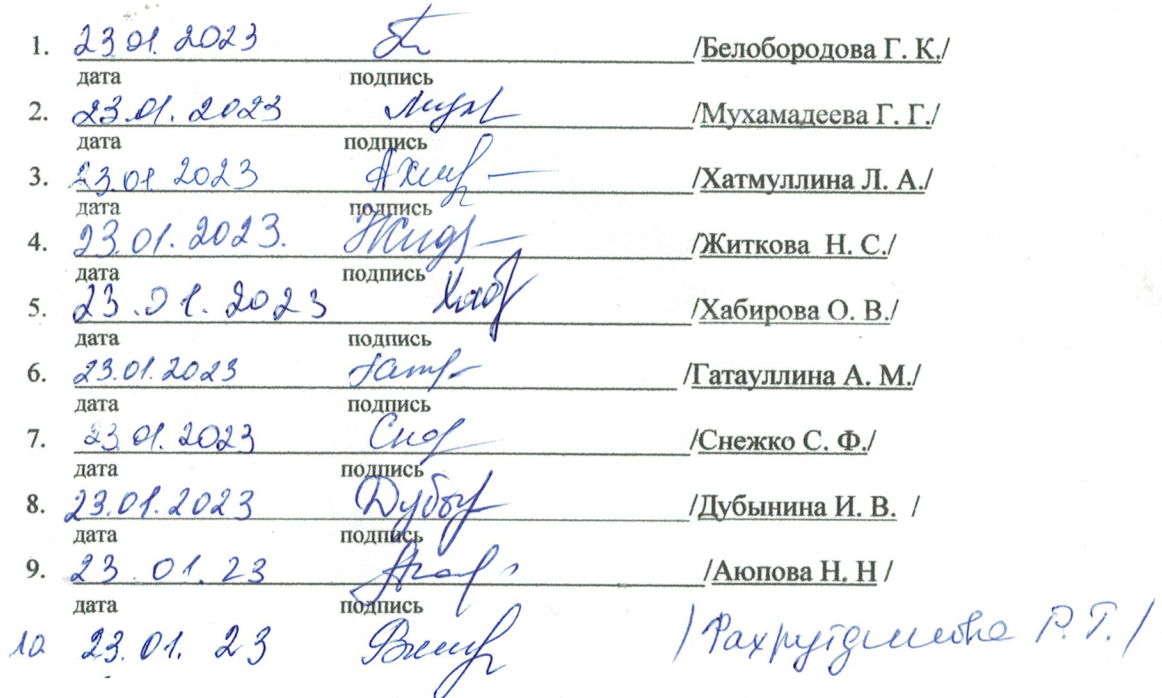 1. 23.01.2023 /Белобородова Г. К./
дата подпись
2. 23.01.2023 /Мухамадеева Г. Г./
дата подпись
3. 23.01 2023 /Хатмуллина Л. А./
дата подпись
4. 23.01.2023. /Житкова Н. С./
дата подпись
5. 23.01.2023 Хаб /Хабирова О. В./
дата подпись
6. 23.01.2023 /Гатауллина А. М./
дата подпись
7. 23.01.2023 /Снежко С. Ф./
дата подпись
8. 23.01.2023 /Дубынина И. В. /
дата подпись
9. 23.01.23 /Аюпова Н. Н /
дата подпись
10 23.01.23 / Р. Т. /